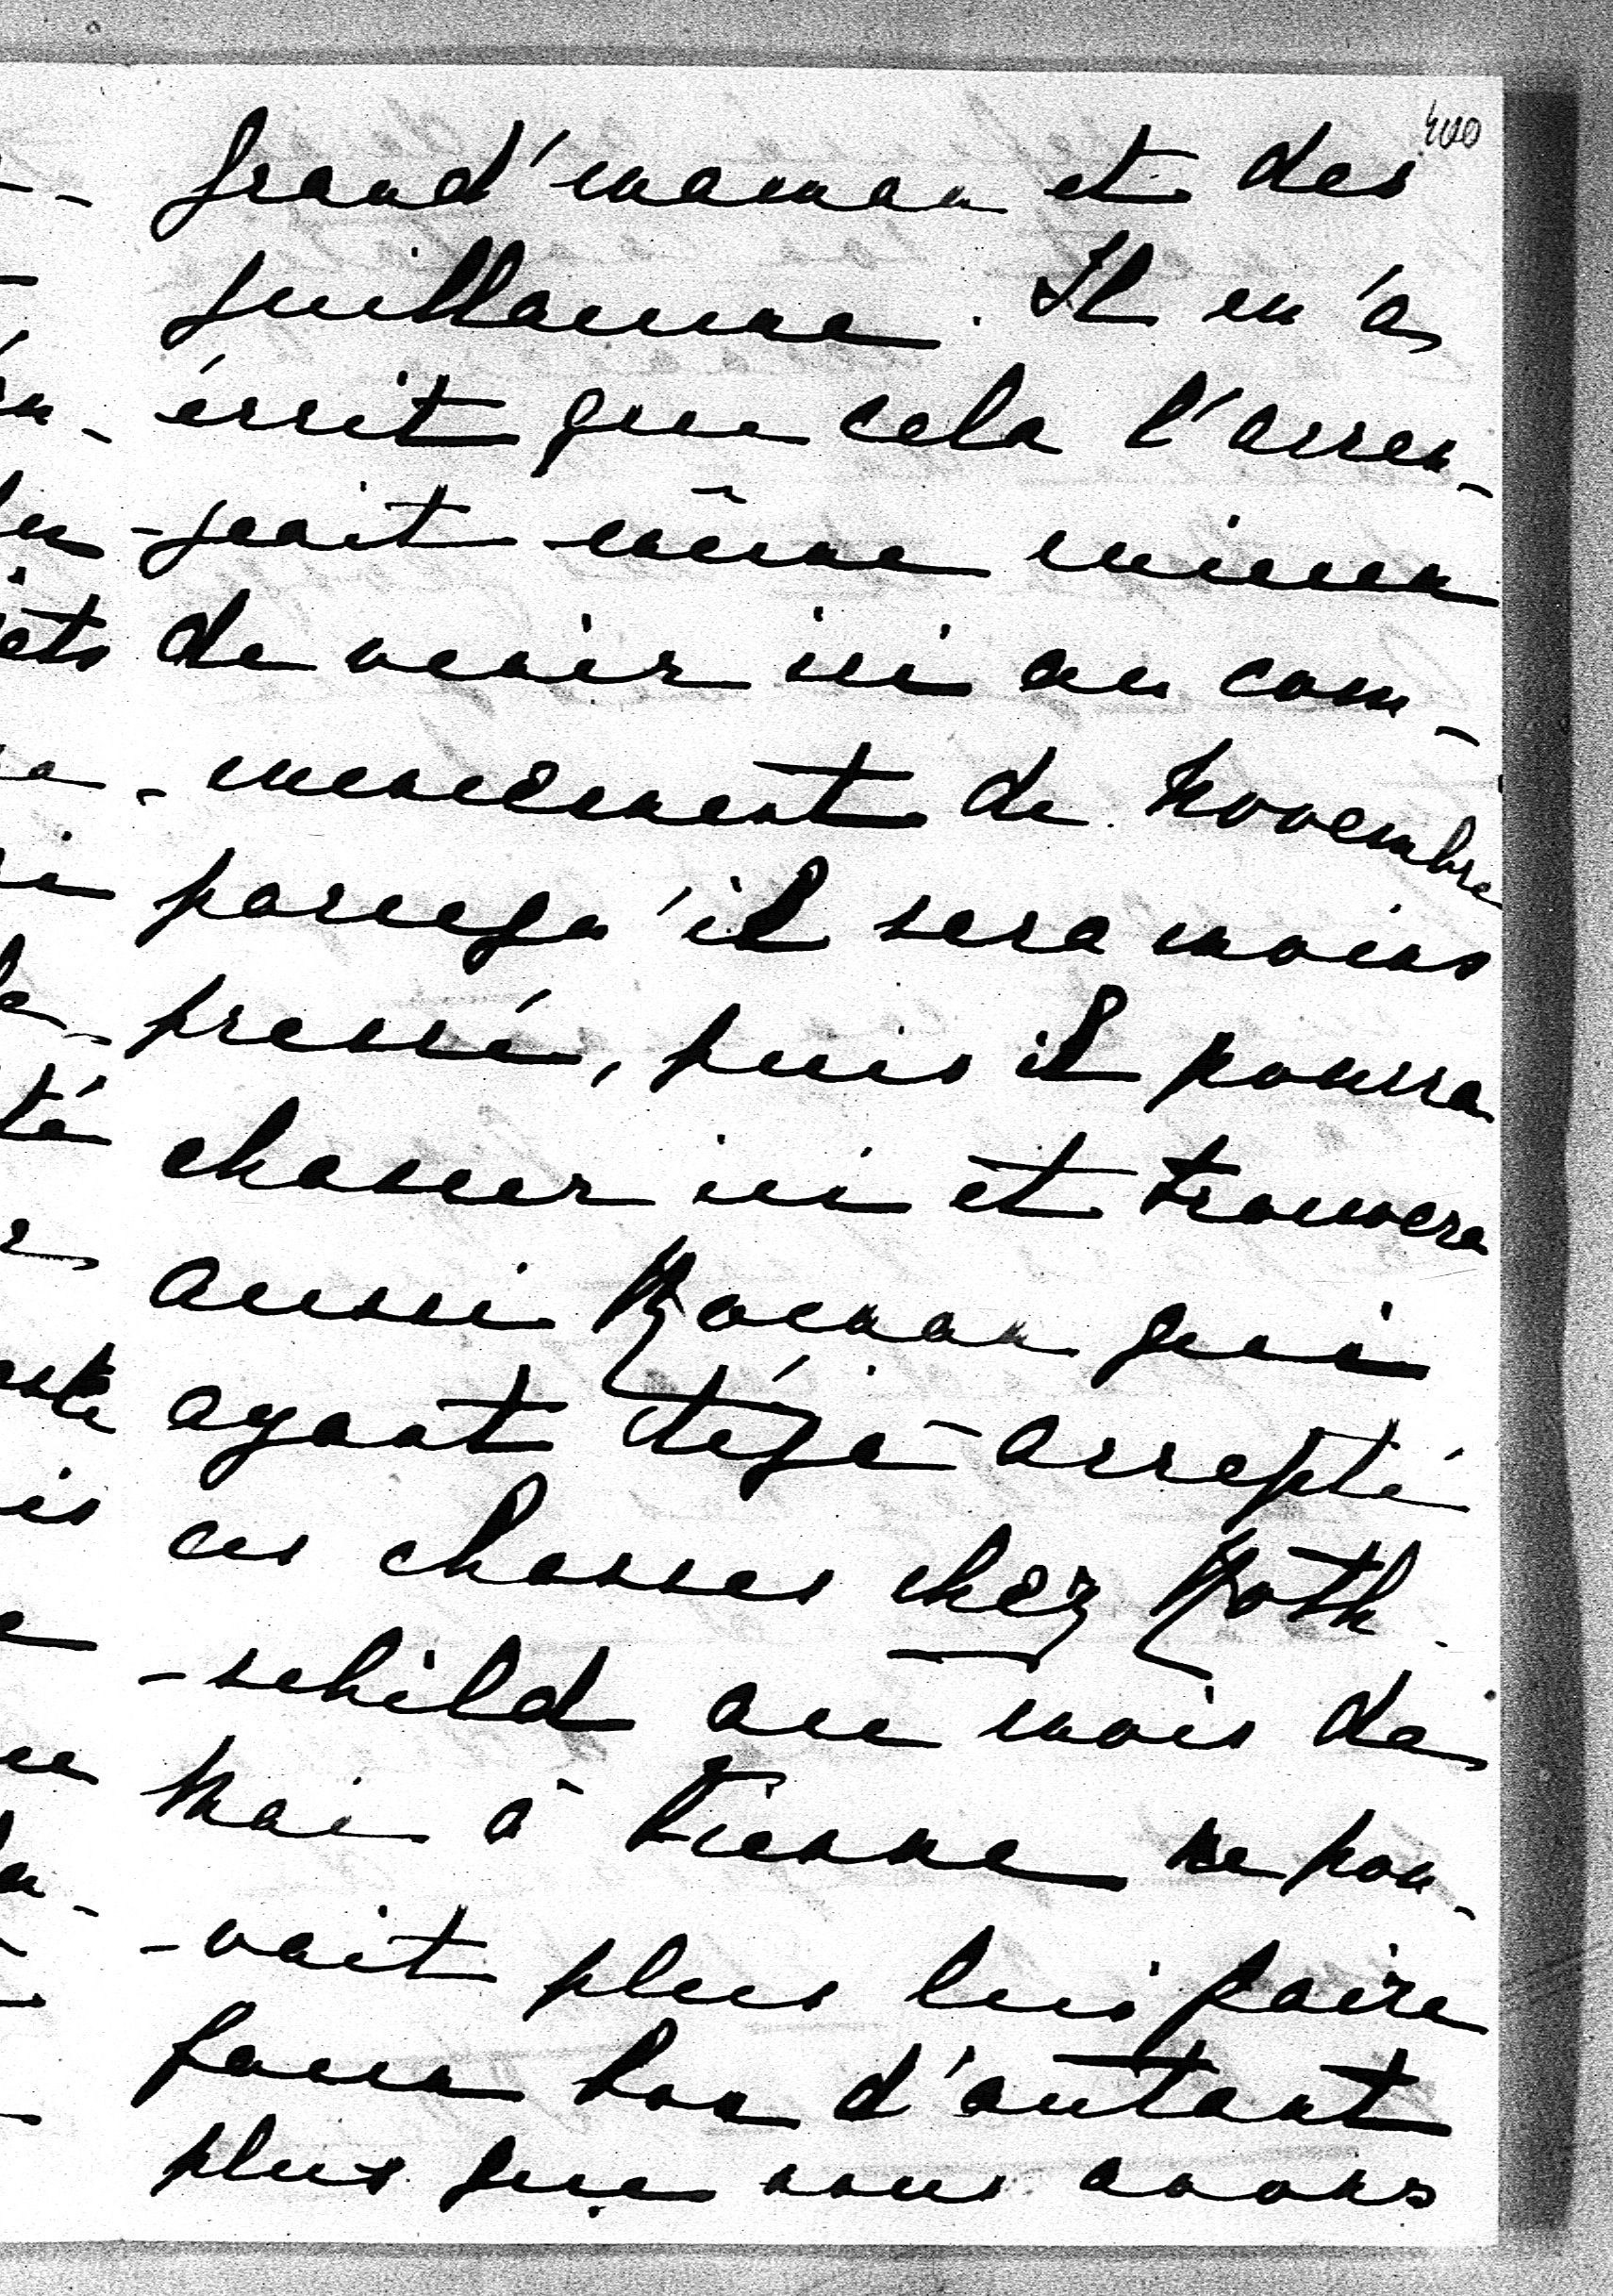 400
grand'maman et des
Guillaume. Il m'a
écrit que cela l'arran-
-geait même mieux
de venir ici au com-
-mencement de Novembre
parcequ'il sera moins
pressé, puis il pourra
chasser ici et trouvera
aussi Roman qui
ayant déjà accepté
ces chasses chez Roth
-schild au mois de
Mai à Vienne ne pou-
-vait plus lui faire
faux bon d'autant
plus que nous avons